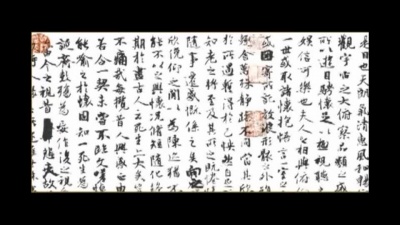 是日也天朗氣清惠風和暢
觀宇宙之大俯察品類之盛
所以遊目騁懷足以極視聽
娛信可樂也夫人之相與俯
一世或取諸懷抱悟言一室之
或因寄所託放浪形骸之外
趣舍萬殊靜躁不同當其欣
於所遇暫得於己快然自足
知老之將至及其所之既惓
隨事遷感慨係之矣向之
欣俛仰之閒以為陳迹猶不
能不以之興懷況脩短隨化終
期於盡古人云死生亦大矣
不痛哉每攬昔人興感之由
若合一契未嘗不臨文嗟悼
能喻之於懷固知一死生為
誕齊彭殤為妄作後之視
由今之視昔悲夫故